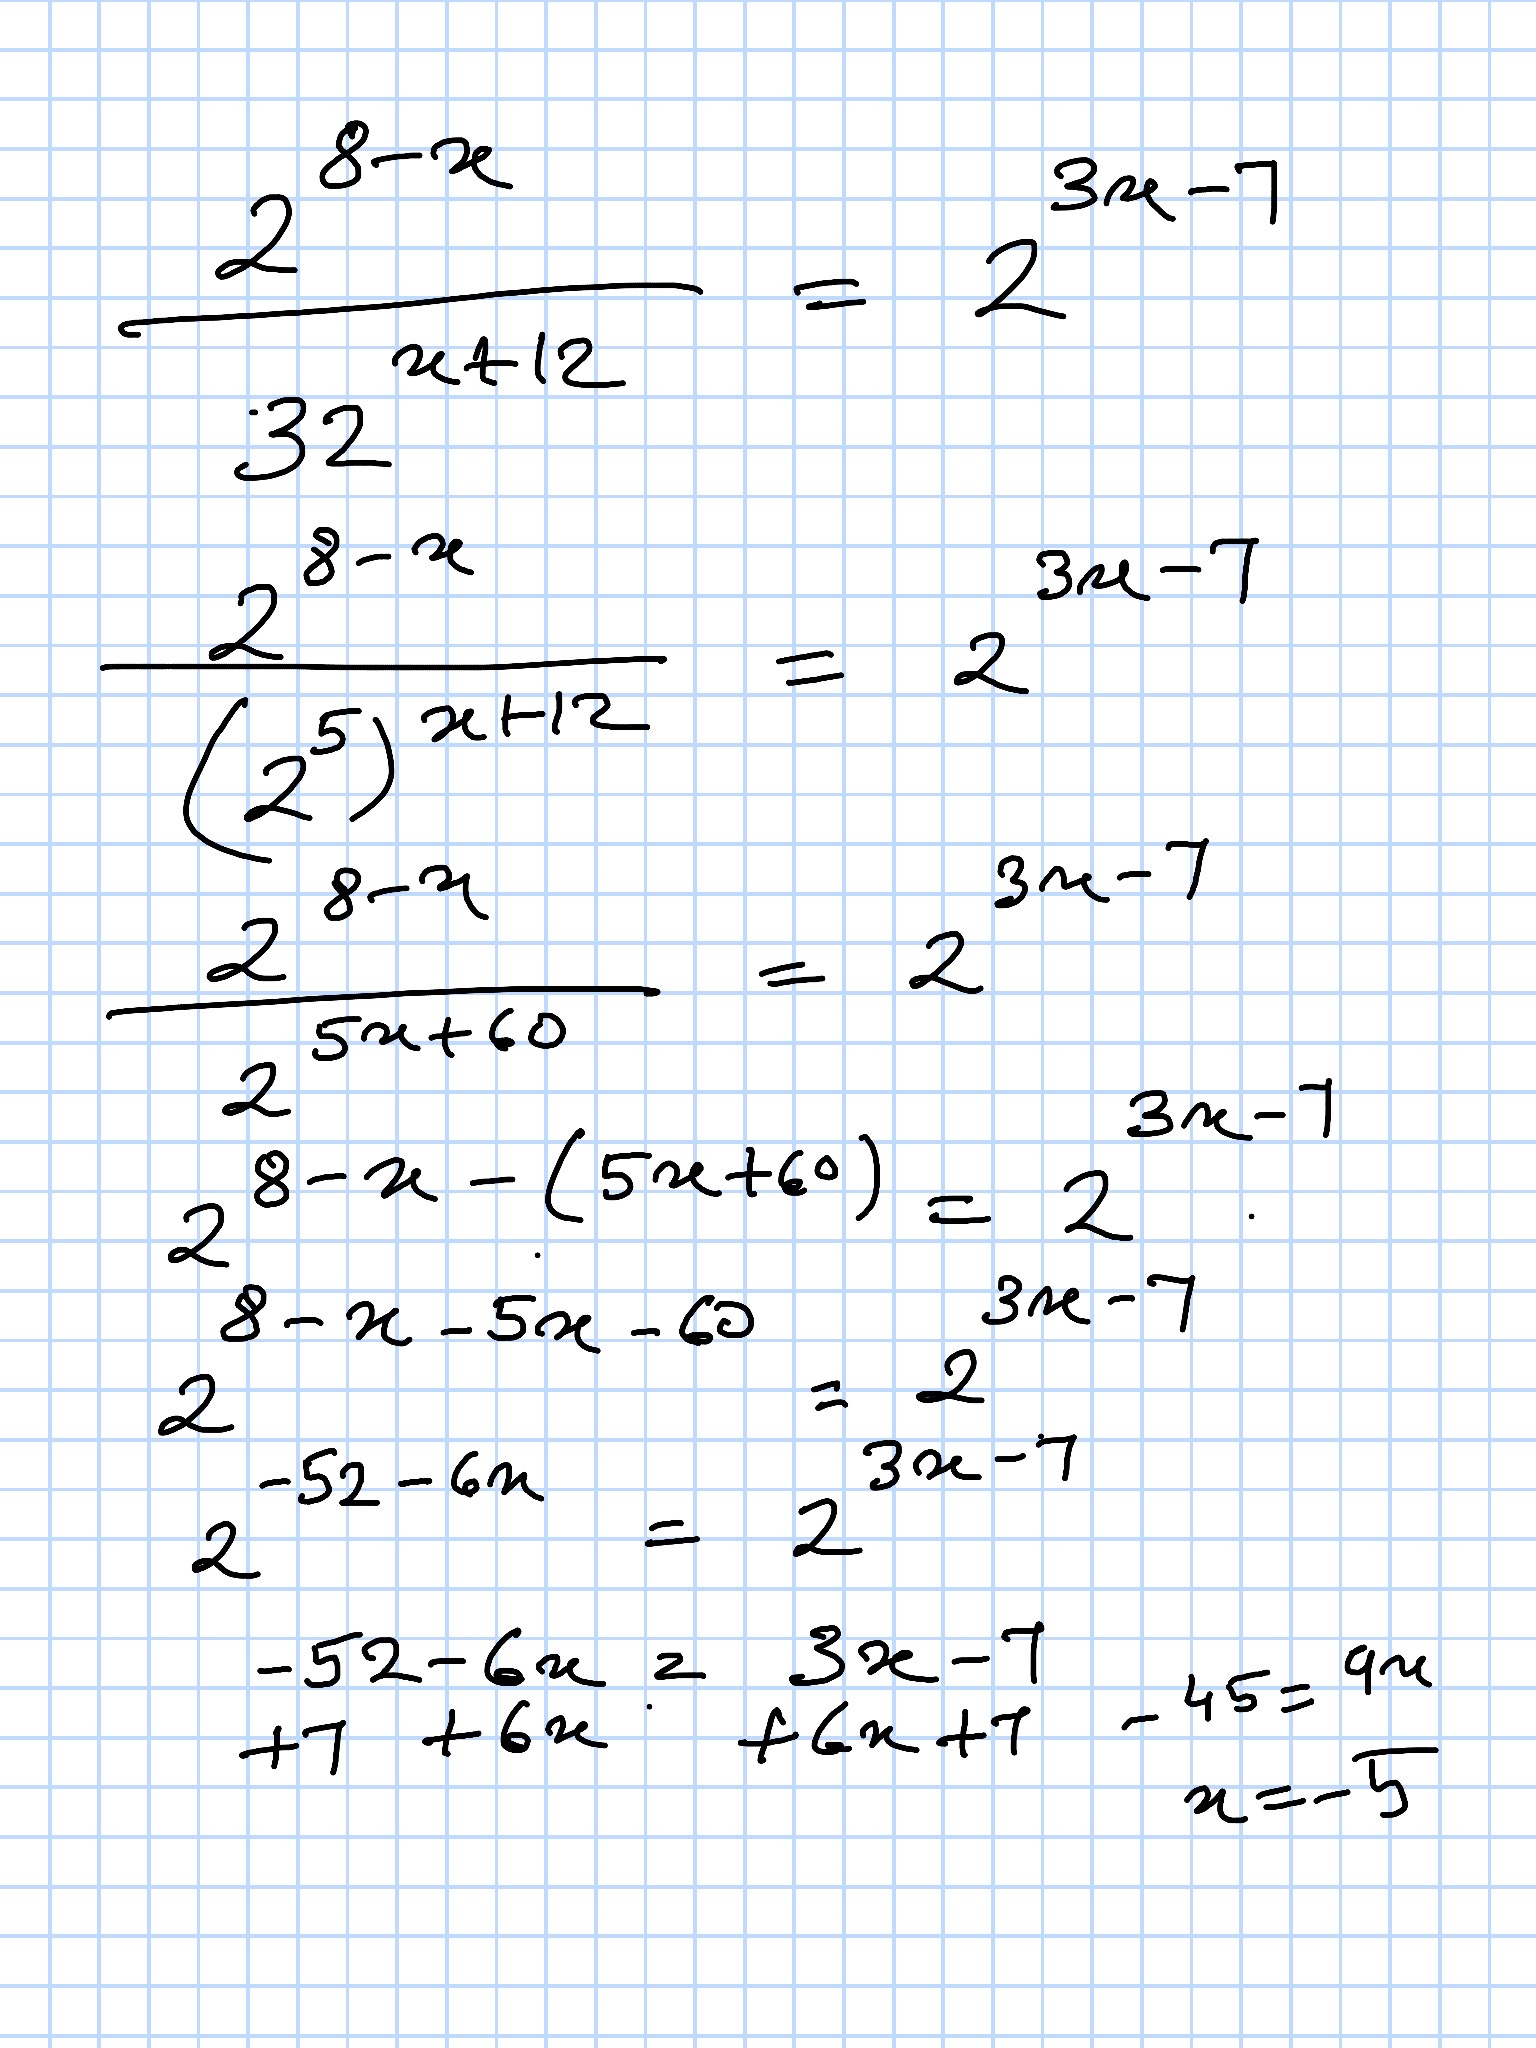 2^{8-x} / 32^{x+12} = 2^{3x-7}
2^{8-x} / (2^5)^{x+12} = 2^{3x-7}
2^{8-x} / 2^{5x+60} = 2^{3x-7}
2^{8-x-(5x+60)} = 2^{3x-7}
2^{8-x-5x-60} = 2^{3x-7}
2^{-52-6x} = 2^{3x-7}
-52-6x = 3x-7
+7 +6x +6x+7
-45=9x
x=-5